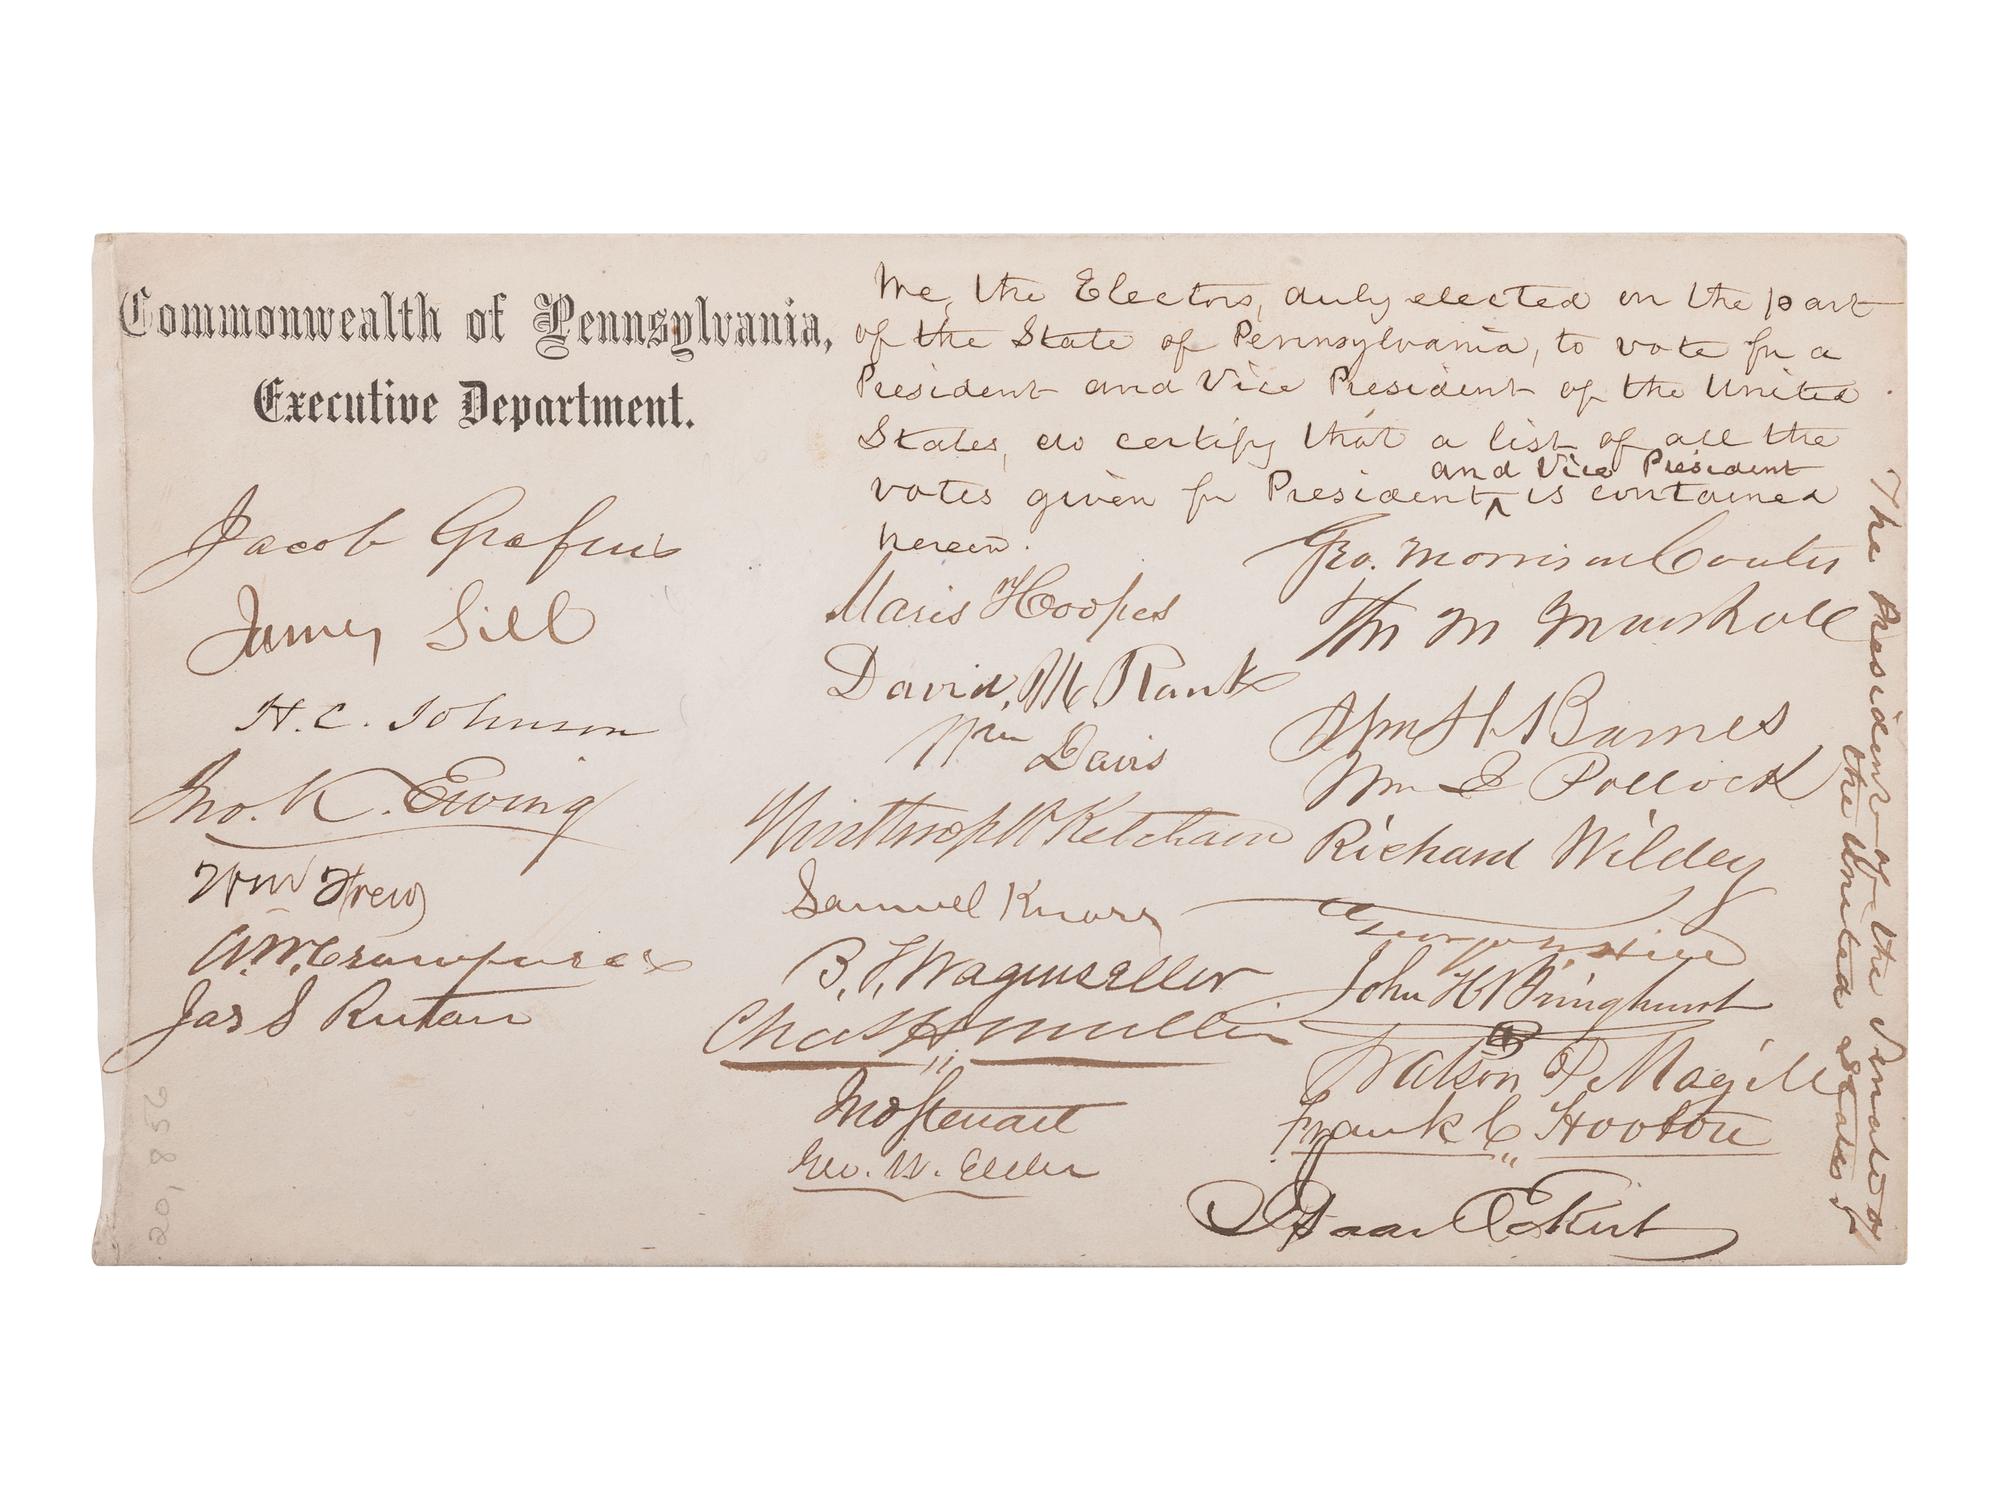 Commonwealth of Pennsylvania,
Executive Department.
We, the Electors, duly elected on the part
of the State of Pennsylvania, to vote for a
President and Vice President of the United
States, do certify that a list of all the
and Vice President
votes given for President ‸ is contained
herein.
Jacob Grafius
James Sill
H. C. Johnson
Jno. K. Ewing
Wm Frew
A. W. Crawford
Jas S Rutan
Maris Hoopes
David, M Rank
Wm Davis
Winthrop W Ketcham
Samuel Knorr
B. F. Wagenseller
Chas H Mullin
Jno Stewart
Geo. W. Elder
Geo. Morrison Coates
Th M Marshall
Wm H Barnes
Wm J Pollock
Richard Wildey
John H Bringhurst
Watson P Magill
Frank C Hooton
Isaac Eckert
The President of the Senate of
the United States of
20,856